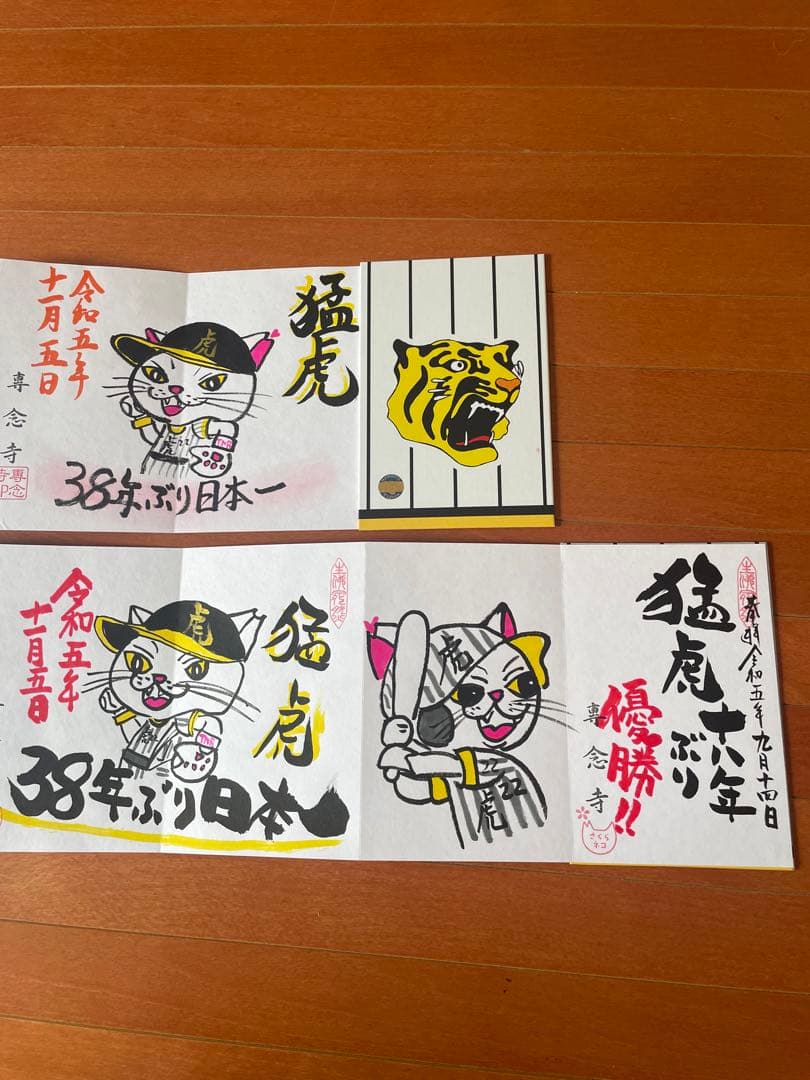 猛虎
虎
令和五年
十一月五日
専念寺
38年ぶり日本一
22
虎
TMR
専念
寺印
猛虎十八年
ぶり
優勝!!
奉拝令和五年九月十四日
専念寺
さくら
ネコ
虎
22
22
虎
猛虎
虎
令和五年
十一月五日
38年ぶり日本一